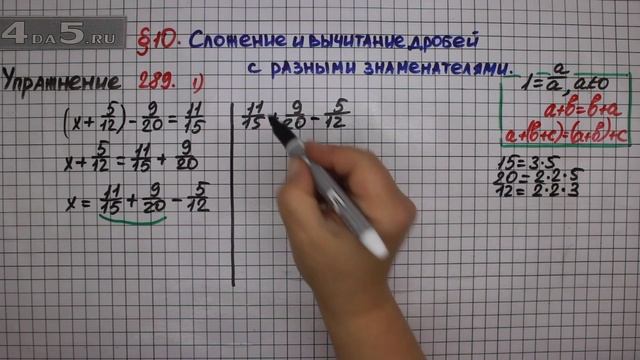 4DA5.RU
§10. Сложение и вычитание дробей
с разными знаменателями.
Упражнение 289. 1)
(x + 5/12) - 9/20 = 11/15
x + 5/12 = 11/15 + 9/20
x = 11/15 + 9/20 - 5/12
11/15 + 9/20 - 5/12
1 = a/a, a≠0
a+b=b+a
a+(b+c)=(a+b)+c
15 = 3·5
20 = 2·2·5
12 = 2·2·3